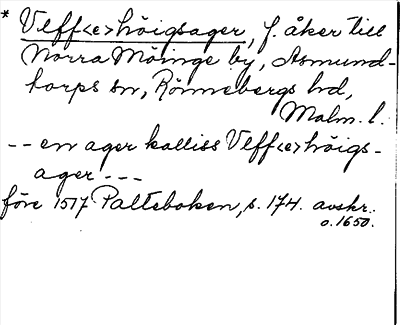 * Ulff<e>höigsager, f. åker till
Norra Möinge by, Asmund-
torps sn, Rönnebergs hd,
Malm. l.
-- en ager kalliss Ulff<e>höigs-
ager ---
före 1517 Palteboken, s. 174. avskr.
o. 1650.